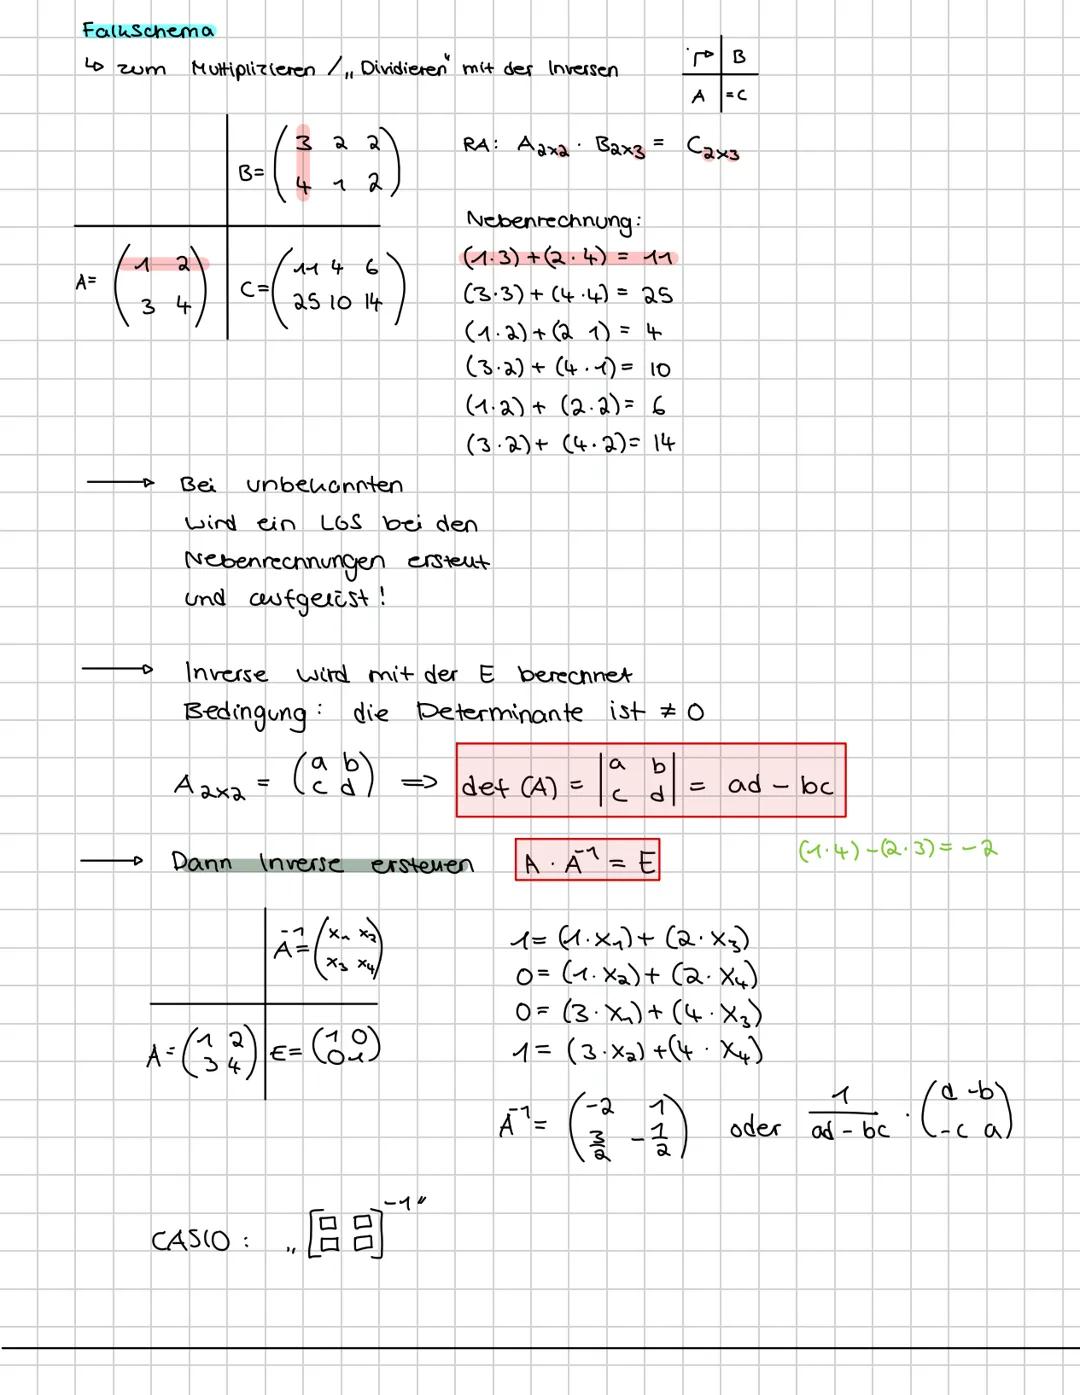 Falkschema
↳ zum Multiplizieren / „Dividieren" mit der Inversen
B
A = C
B = ( 3 2 2
4 1 2 )
RA: A2x2 · B2x3 = C2x3
A = ( 1 2
3 4 )
C = ( 11 4 6
25 10 14 )
Nebenrechnung:
(1·3) + (2·4) = 11
(3·3) + (4·4) = 25
(1·2) + (2 1) = 4
(3·2) + (4·1) = 10
(1·2) + (2·2) = 6
(3·2) + (4·2) = 14
→ Bei unbekannten
wird ein LGS bei den
Nebenrechnungen erstellt
und aufgelöst!
→ Inverse wird mit der E berechnet
Bedingung: die Determinante ist ≠ 0
A2x2 = (a b
c d) ⇒ det (A) = |a b
c d| = ad - bc
→ Dann Inverse erstellen A · A⁻¹ = E (1·4) - (2·3) = -2
A⁻¹ = ( x1 x2
x3 x4 )
A = ( 1 2
3 4 )
E = ( 1 0
0 1 )
1 = (1·x1) + (2·x3)
0 = (1·x2) + (2·x4)
0 = (3·x1) + (4·x3)
1 = (3·x2) + (4·x4)
A⁻¹ = ( -2 1
3/2 -1/2 ) oder 1/(ad - bc) · ( d -b
-c a )
CASIO: „[□ □
□ □]⁻¹"